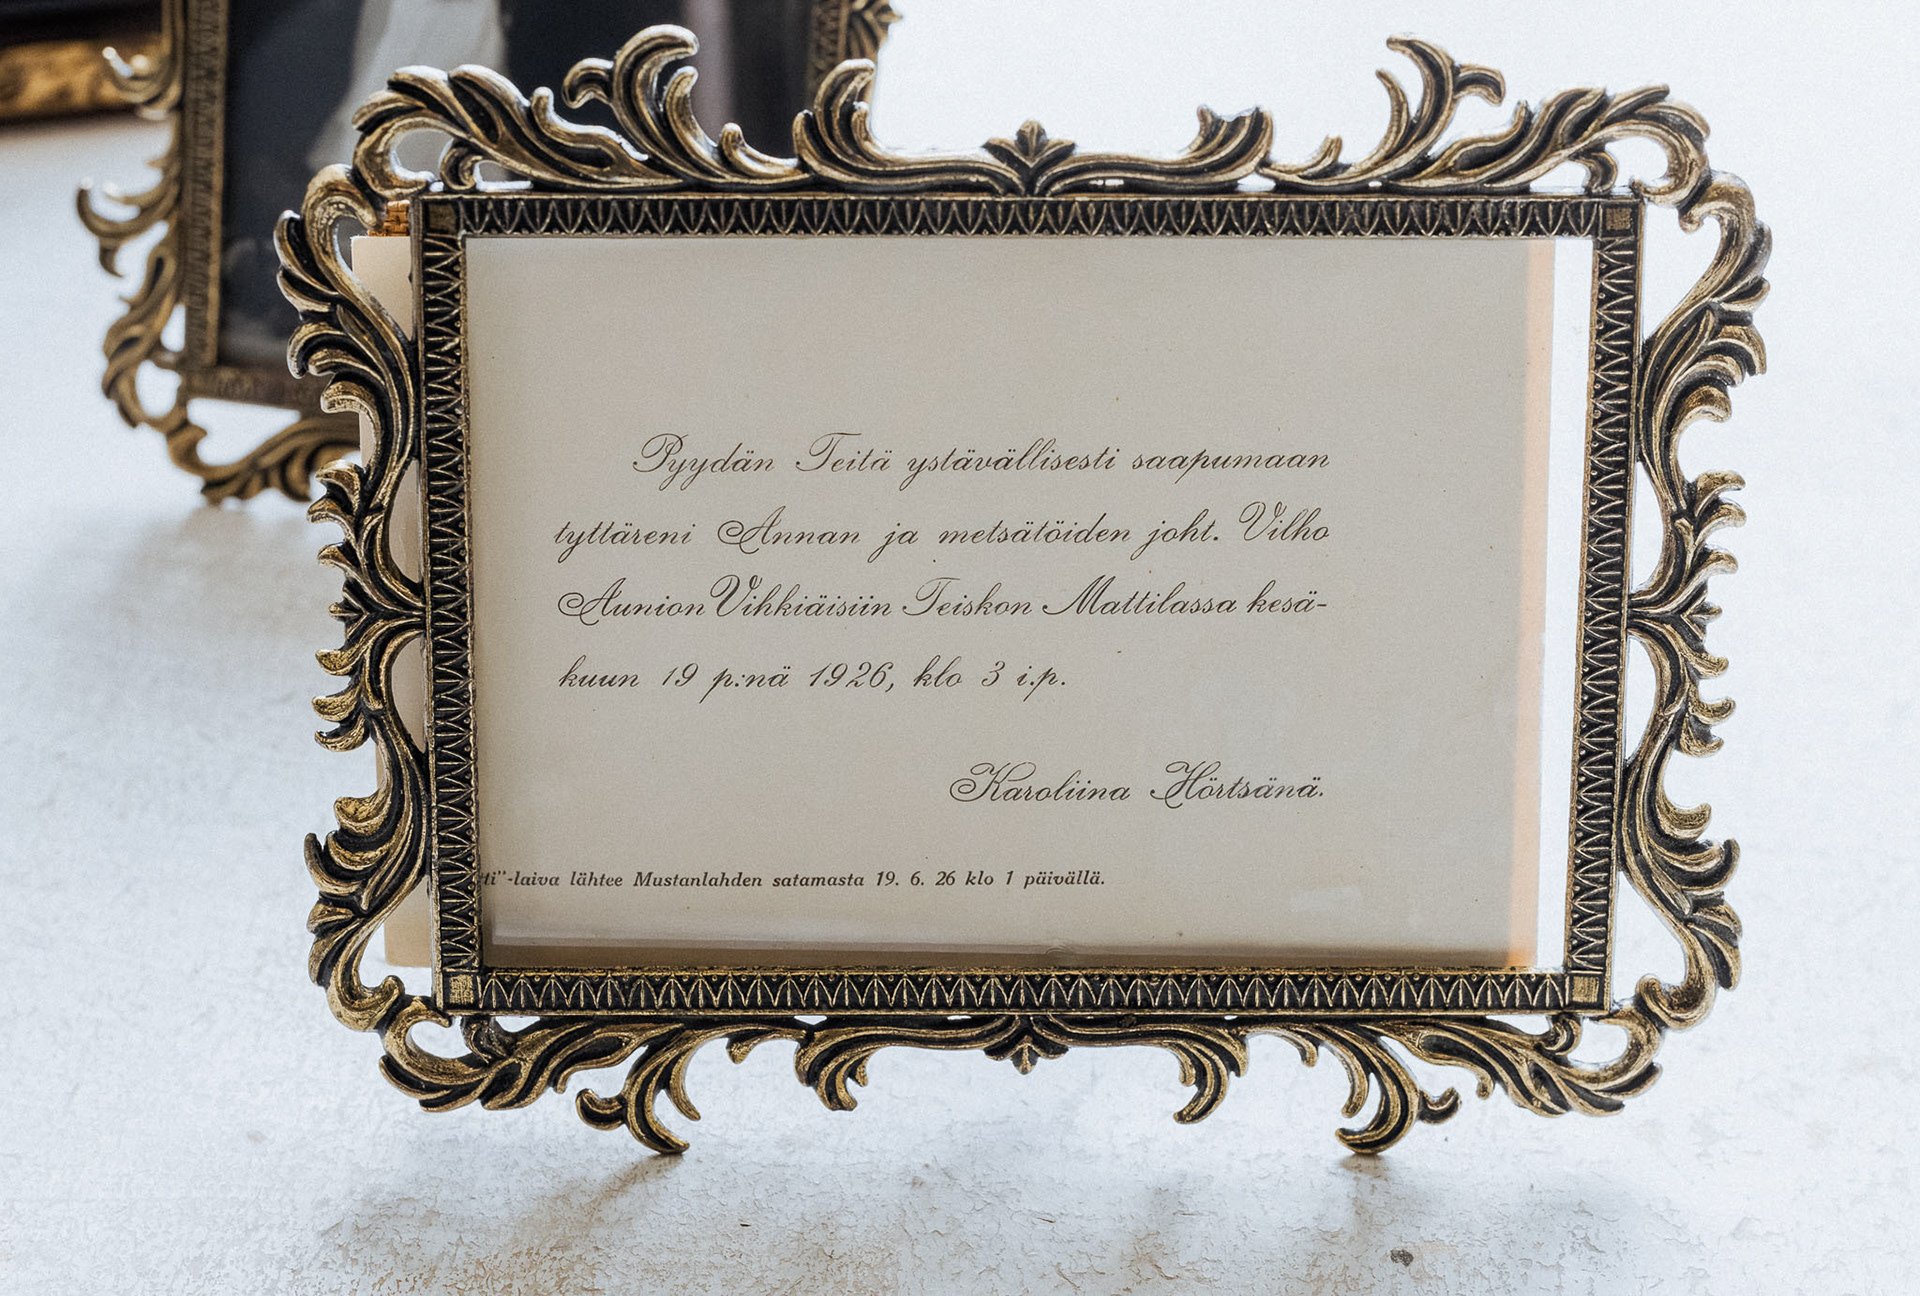 Pyydän Teitä ystävällisesti saapumaan
tyttäreni Annan ja metsätöiden joht. Vilho
Aunion Vihkiäisiin Teiskon Mattilassa kesä-
kuun 19 p:nä 1926, klo 3 i.p.
Karoliina Hörtsänä.
ti"-laiva lähtee Mustanlahden satamasta 19. 6. 26 klo 1 päivällä.